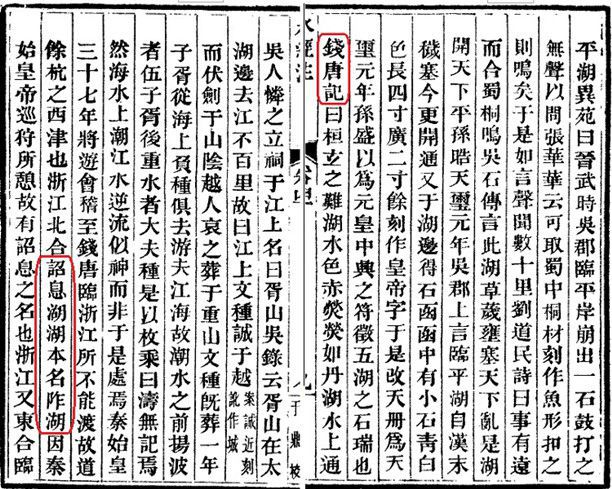 平湖異苑曰晉武時吳郡臨平岸崩出一石鼓打之
無聲以問張華華云可取蜀中桐材刻作魚形扣之
則鳴矣于是如言聲聞數十里劉道民詩曰事有遠
而合蜀桐鳴吳石傳言此湖草薉壅塞天下亂是湖
開天下平孫晧天璽元年吳郡上言臨平湖自漢末
穢塞今更開通又于湖邊得石函函中有小石青白
色長四寸廣二寸餘刻作皇帝字于是改天冊爲天
璽元年孫盛以爲元皇中興之符徵五湖之石瑞也
錢唐記曰桓玄之難湖水色赤熒熒如丹湖水上通
水經注
吳人憐之立祠于江上名曰胥山吳錄云胥山在太
湖邊去江不百里故曰江上文種誠于越案誠近刻訛作城
而伏劍于山陰越人哀之葬于重山文種旣葬一年
子胥從海上負種俱去游夫江海故潮水之前揚波
者伍子胥後重水者大夫種是以枚乘曰濤無記焉
然海水上潮江水逆流似神而非于是處焉秦始皇
三十七年將遊會稽至錢唐臨浙江所不能渡故道
餘杭之西津也浙江北合詔息湖湖本名阼湖因秦
始皇帝巡狩所憩故有詔息之名也浙江又東合臨